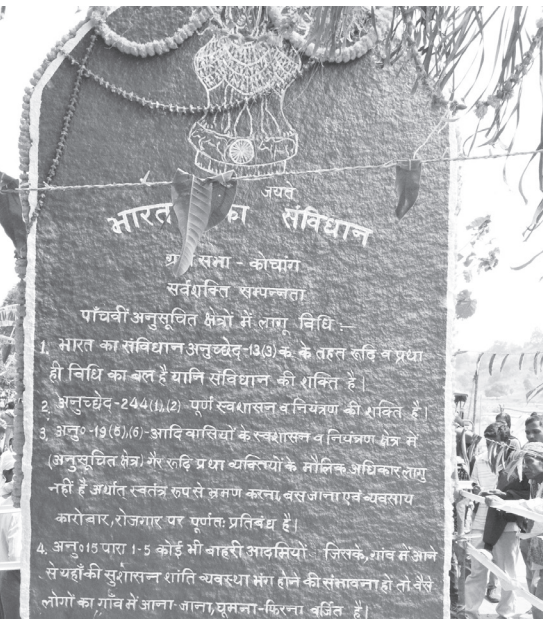 जयते
भारत का संविधान
ग्राम सभा - कोचांग
सर्वशक्ति सम्पन्नता
पाँचवीं अनुसूचित क्षेत्रों में लागू विधि :-
1. भारत का संविधान अनुच्छेद-13(3) क के तहत रूढ़ि व प्रथा
ही विधि का बल है यानि संविधान की शक्ति है।
2. अनुच्छेद-244(1),(2) पूर्ण स्वशासन व नियंत्रण की शक्ति है।
3. अनु०-19(5),(6)-आदिवासियों के स्वशासन व नियंत्रण क्षेत्र में
(अनुसूचित क्षेत्र) गैर रूढ़ि प्रथा व्यक्तियों के मौलिक अधिकार लागु
नहीं है अर्थात स्वतंत्र रूप से भ्रमण करना, बस जाना एवं व्यवसाय
कारोबार, रोजगार पर पूर्णतः प्रतिबंध है।
4. अनु०15 पारा 1-5 कोई भी बाहरी आदमियों जिसके, गांव में आने
से यहाँ की सुशासन्न शांति व्यवस्था भंग होने की संभावना हो तो वैसे
लोगों का गाँव में आना-जाना, घूमना-फिरना वर्जित है।